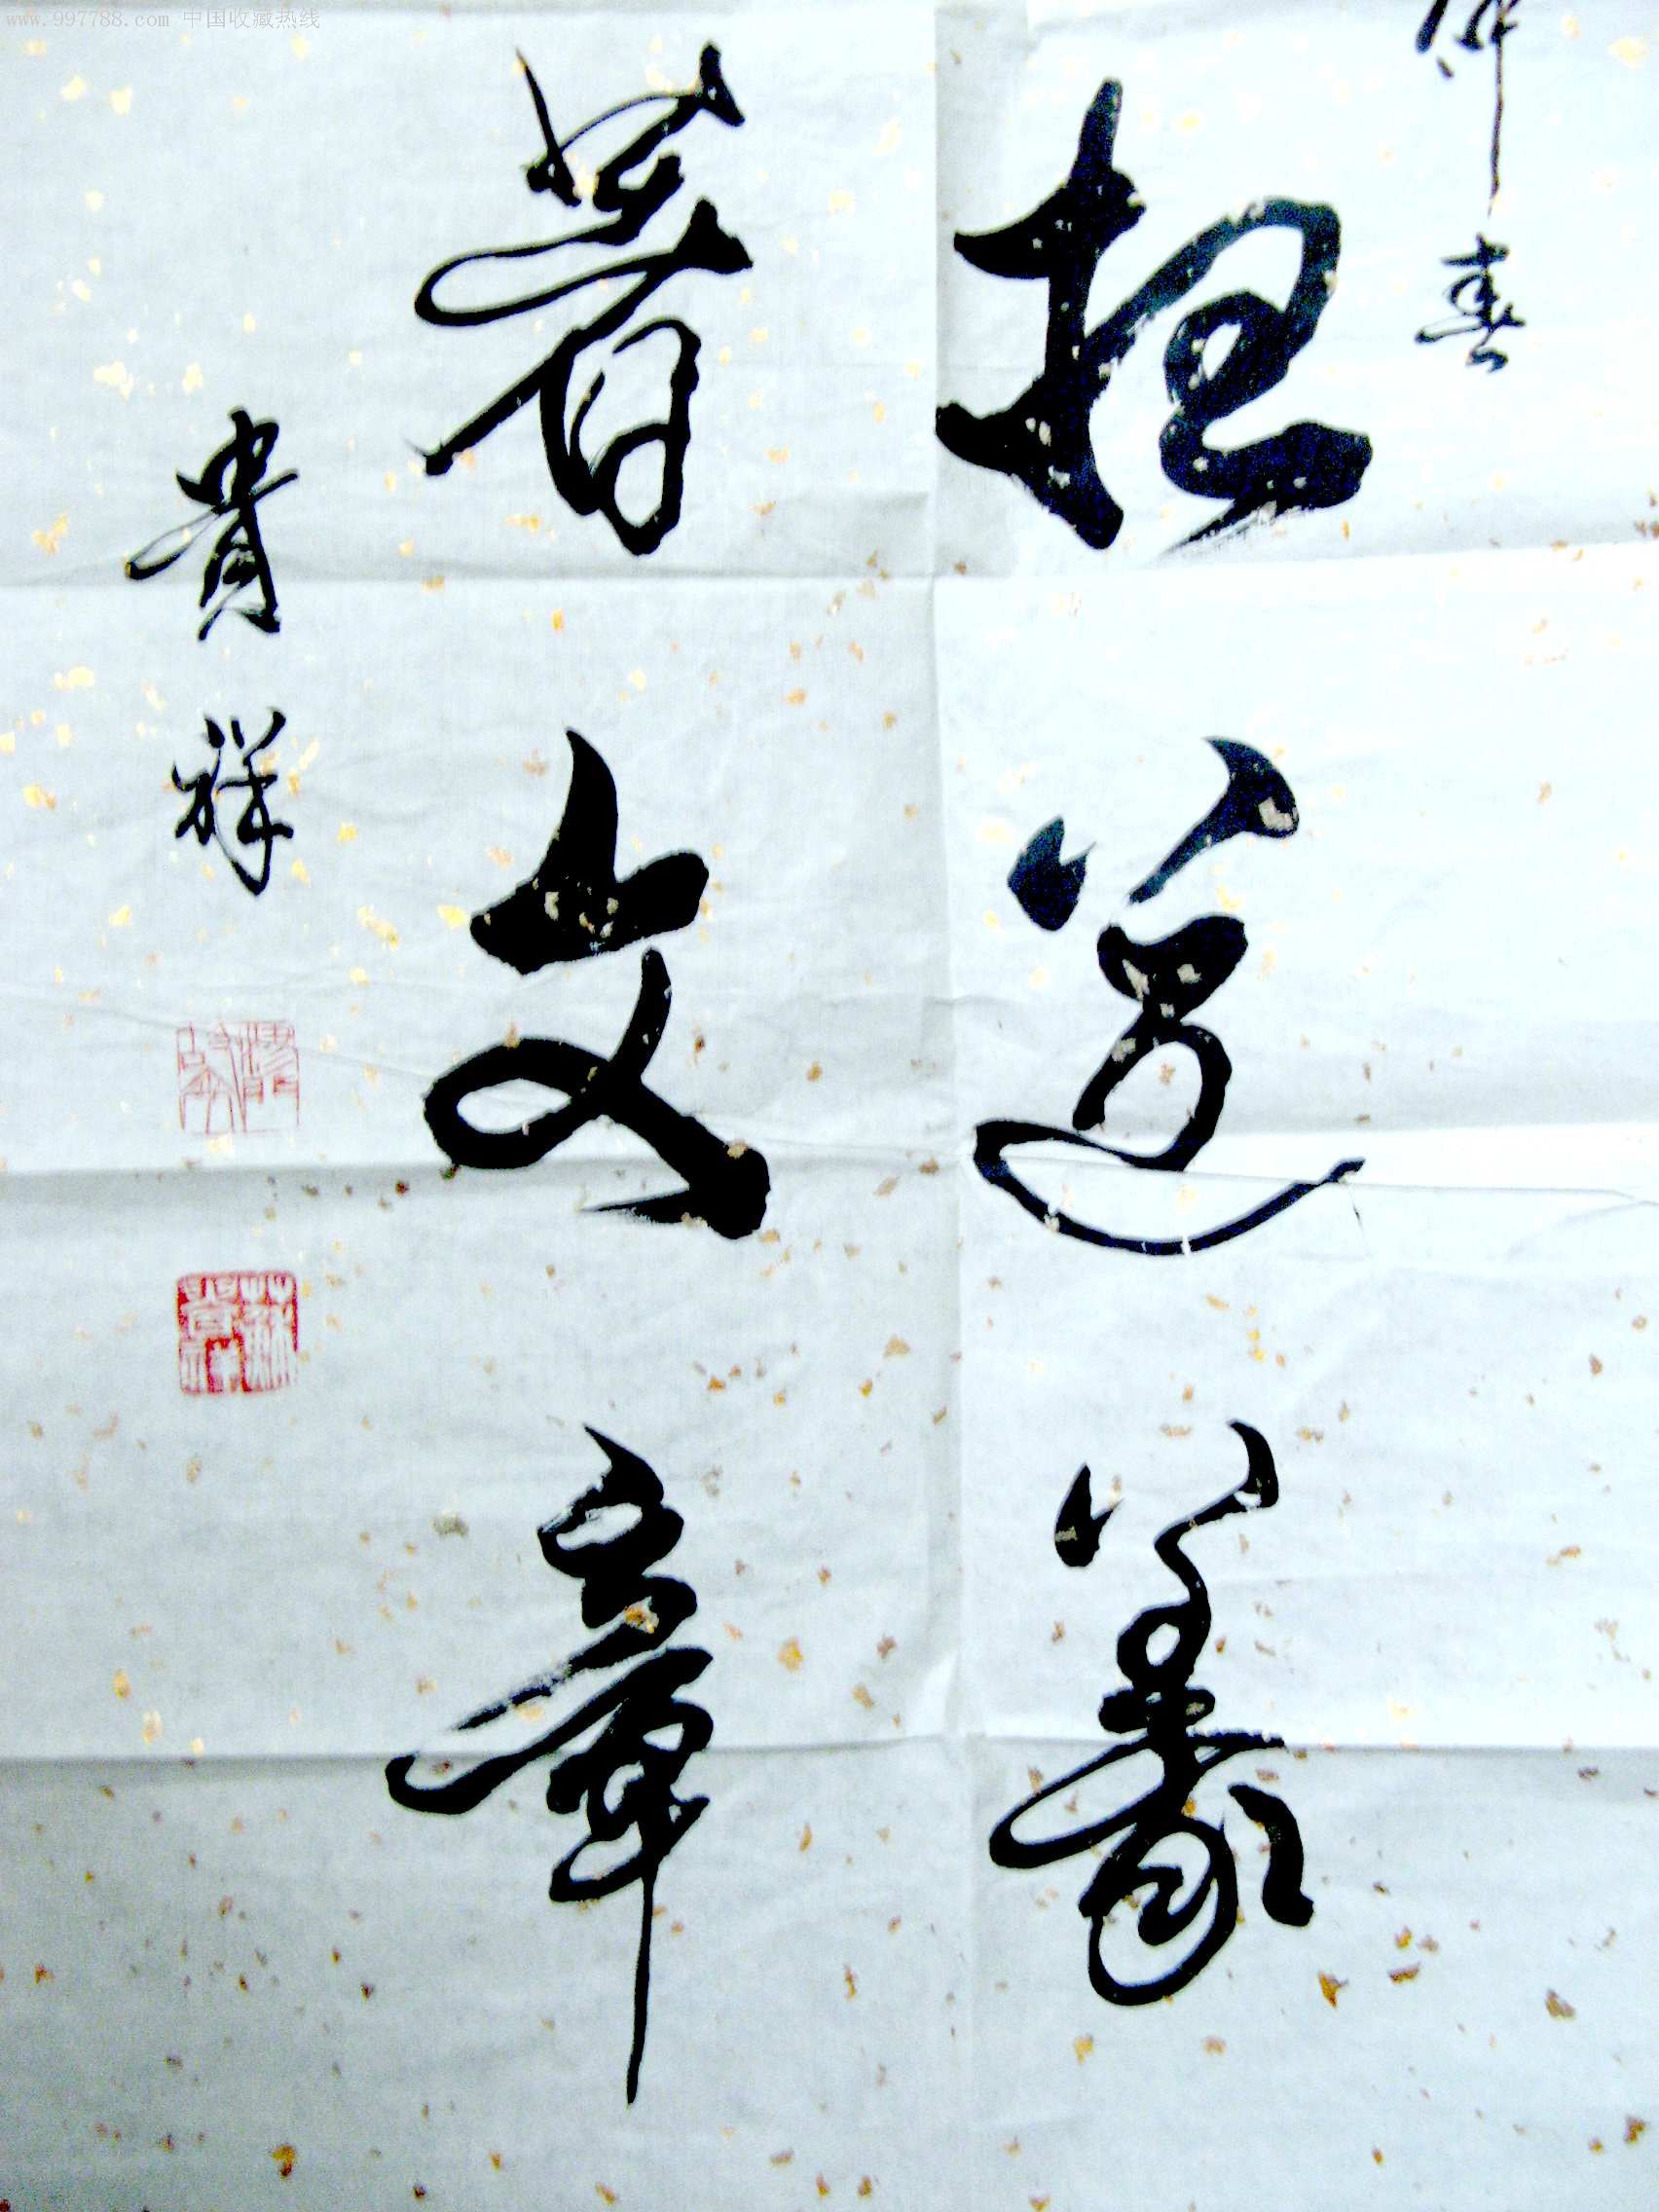 www.997788.com 中国收藏热线
春
担道義
著文章
貴祥
蘇貴祥